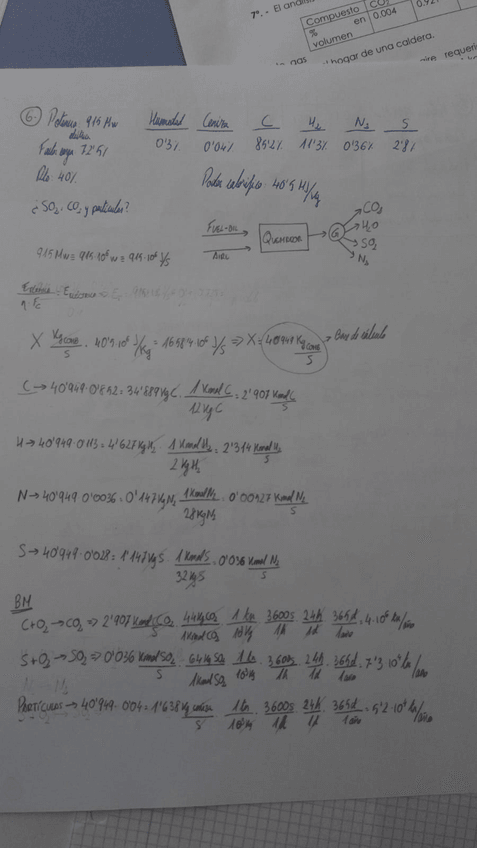 7º.- El anális
Compuesto CO
% en volumen 0.004 0.92
gas hogar de una caldera.
aire requeri
6. Potencia: 915 Mw Humedad Ceniza C H₂ N₂ S
0'3% 0'04% 85'2% 11'3% 0'36% 2'8%
Fact. carga: 72'5%
Rto: 40% Poder calorífico 40'5 MJ/kg
¿SO₂, CO₂ y partículas?
FUEL-OIL
AIRE
QUEMADOR
G
CO₂
H₂O
SO₂
N₂
915 Mw ≡ 915·10⁶ w ≡ 915·10⁶ J/s
X Kg comb/s · 40'5·10⁶ J/Kg = 1658'4·10⁶ J/s ⇒ X = 40'949 Kg comb/s → Base de cálculo
C → 40'949·0'852 = 34'889 Kg C · 1 Kmol C/12 Kg C = 2'907 Kmol C/s
H → 40'949·0'113 = 4'627 Kg H₂ · 1 Kmol H₂/2 Kg H₂ = 2'314 Kmol H₂/s
N → 40'949·0'0036 = 0'147 Kg N₂ · 1 Kmol N₂/28 Kg N₂ = 0'00527 Kmol N₂/s
S → 40'949·0'028 = 1'147 Kg S · 1 Kmol S/32 Kg S = 0'036 Kmol N₂/s
BM
C+O₂ → CO₂ ⇒ 2'907 Kmol CO₂/s · 44 Kg CO₂/1 Kmol CO₂ · 1 tn/10³ Kg · 3600 s/1h · 24h/1d · 365d/1año = 4·10⁶ tn/año
S+O₂ → SO₂ ⇒ 0'036 Kmol SO₂/s · 64 Kg SO₂/1 Kmol SO₂ · 1 tn/10³ Kg · 3600 s/1h · 24h/1d · 365d/1año = 7'3·10⁴ tn/año
Partículas → 40'949·0'04 = 1'638 Kg ceniza/s · 1 tn/10³ Kg · 3600 s/1h · 24h/1d · 365d/1año = 5'2·10⁴ tn/año